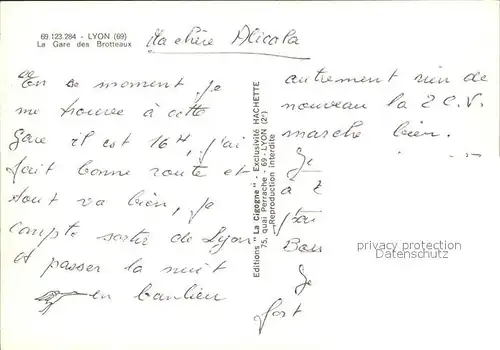 69.123.284 - LYON (69)
La Gare des Brotteaux
Ma chère Alicala
En ce moment je
me trouve à cette
gare il est 16H, j'ai
fait bonne route et
tout va bien, je
compte sortir de Lyon
et passer la nuit
en banlieu
Editions "La Cigogne" - Exclusivité HACHETTE
75, quai Perrache - 69 - LYON (2e)
Reproduction interdite
autrement rien de
nouveau la 2 C.V.
marche bien.
Je
à
j'ai
Bon
Je
fort
privacy protection
AnsichtskartenVersand.com